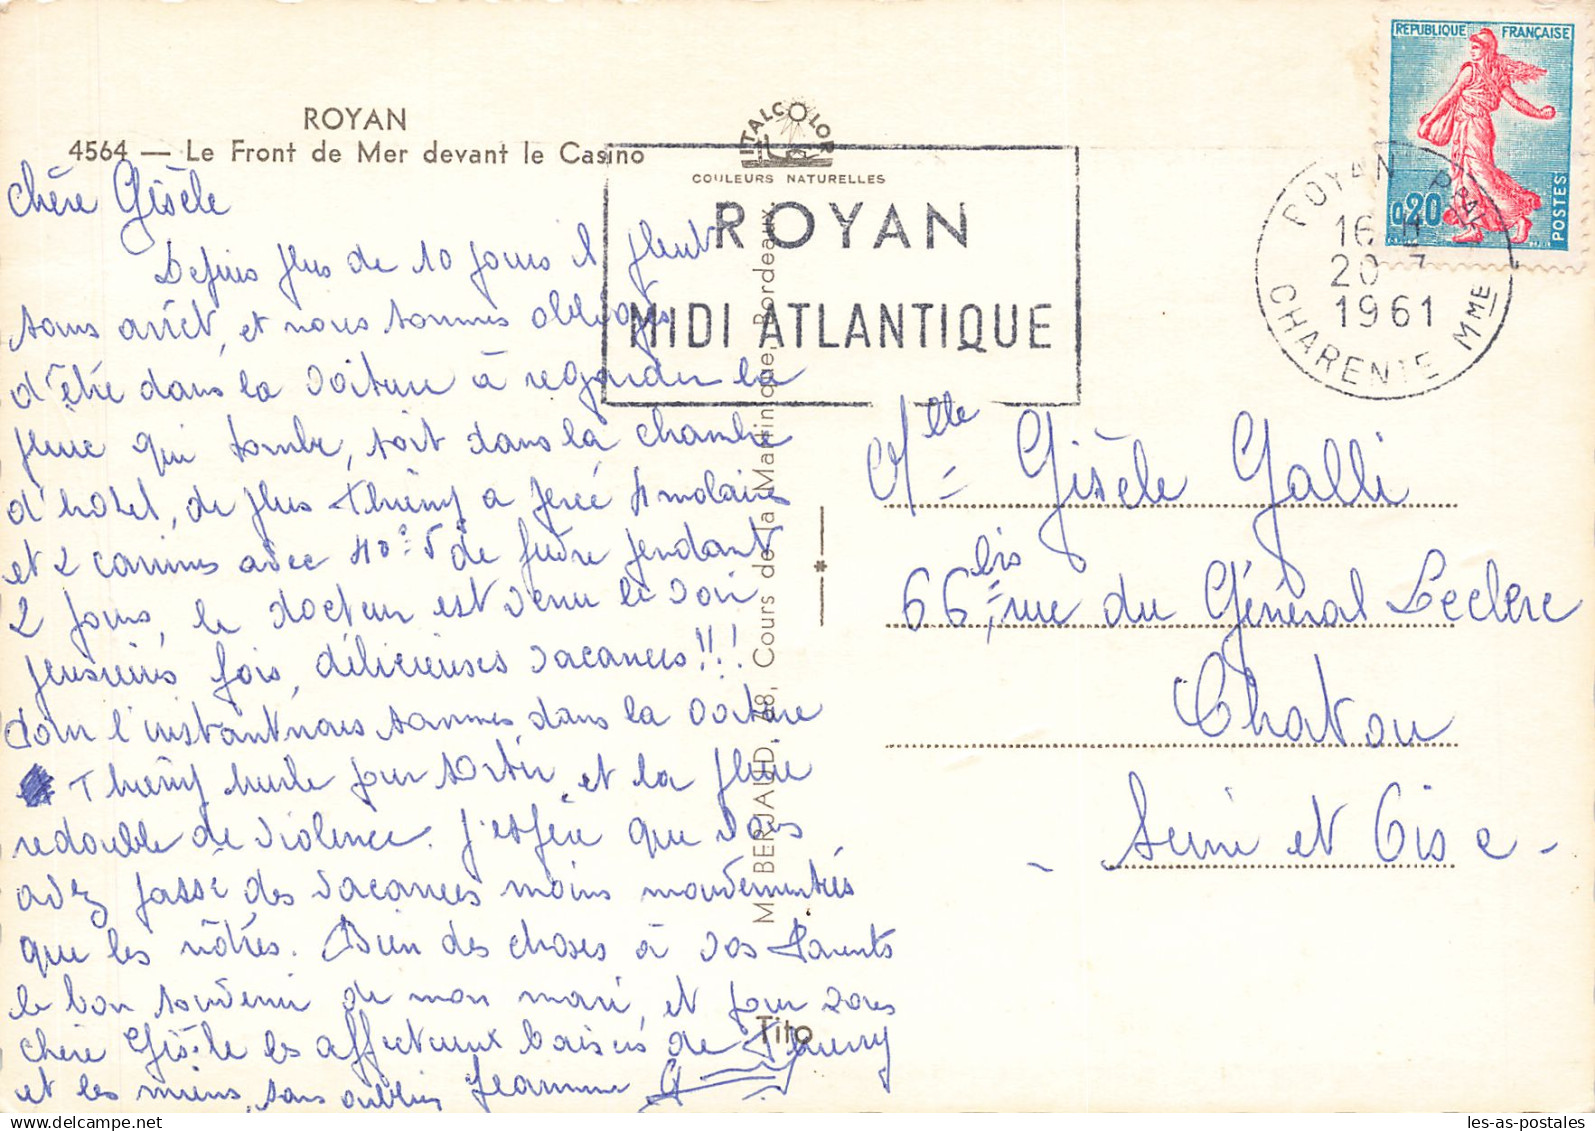 ROYAN
4564 — Le Front de Mer devant le Casino
ITALCOLOR
COULEURS NATURELLES
ROYAN
MIDI ATLANTIQUE
REPUBLIQUE FRANÇAISE
0,20
POSTES
ROYAN PPAL
16 H
20 - 7
1961
CHARENTE MME
chère Gisèle
Depuis plus de 10 jours il pleut
sans arrêt, et nous sommes obligés
d'être dans la voiture à regarder la
pluie qui tombe, soit dans la chambre
d'hôtel, de plus Thierry a percé 4 molaires
et 2 canines avec 40°5 de fièvre pendant
2 jours, le docteur est venu le voir
plusieurs fois, délicieuses vacances!!!
Pour l'instant nous sommes dans la voiture
Thierry hurle pour sortir et la pluie
redouble de violence. J'espère que vous
avez passé des vacances moins mouvementées
que les nôtres. Bien des choses à vos Parents
le bon souvenir de mon mari, et pour vous
chère Gisèle les affectueux baisers de Thierry
et les miens, sans oublier Jeannine
Mlle Gisèle Galli
66 bis, rue du Général Leclerc
Chatou
- Seine et Oise -
M. BERJAUD, 48, Cours de la Martinique, Bordeaux
Tito
les-as-postales